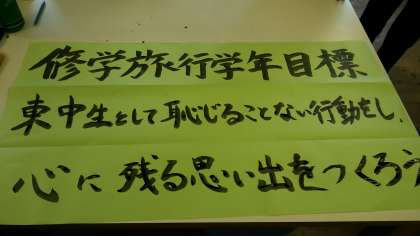 修学旅行学年目標
東中生として恥じることない行動をし、
心に残る思い出をつくろう